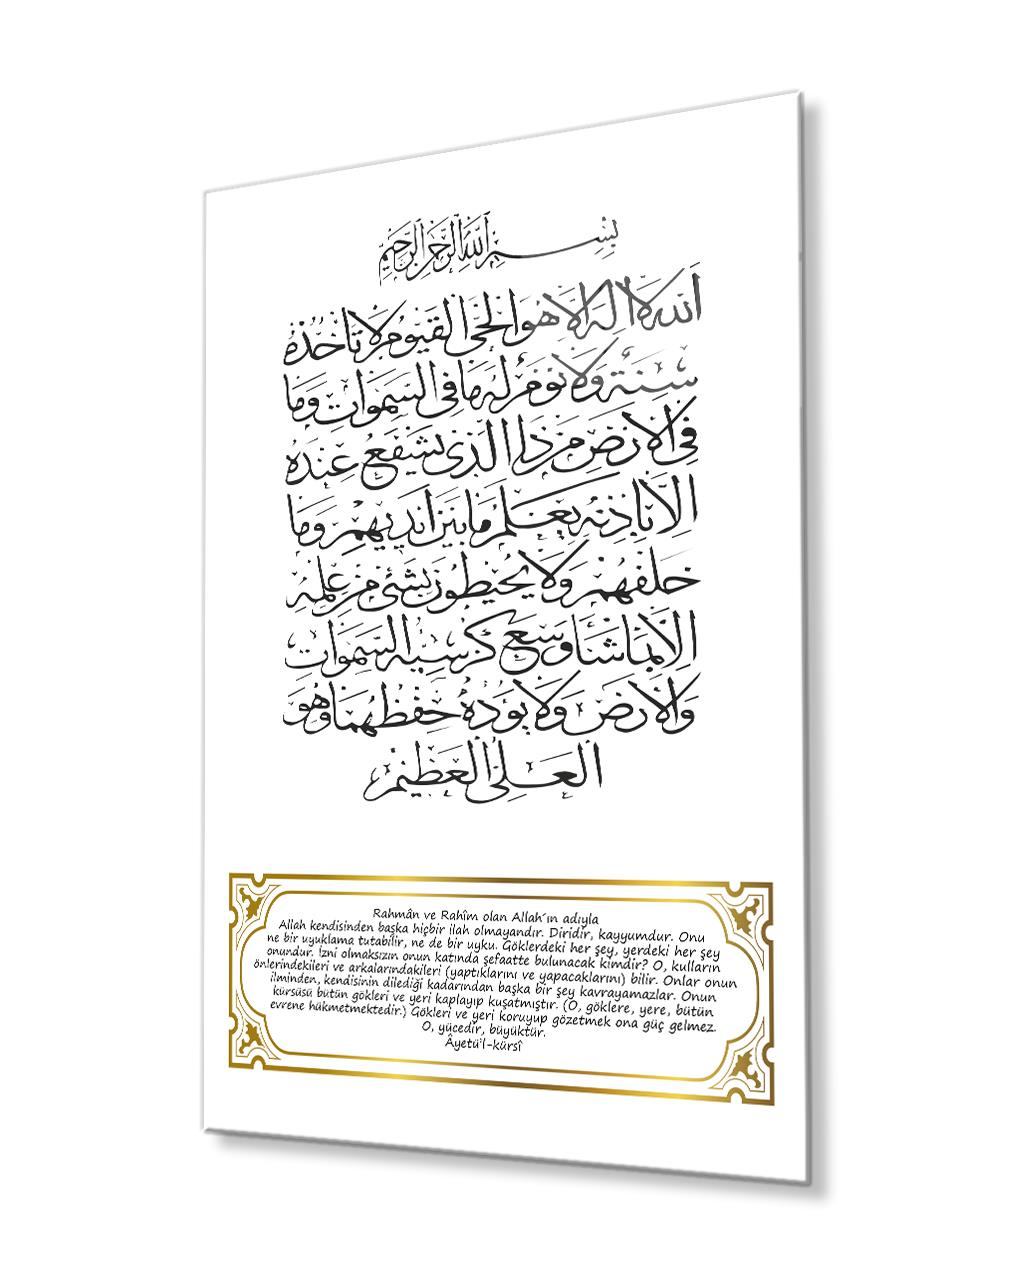 بسم الله الرحمن الرحيم
الله لا اله الا هو الحي القيوم لا تأخذه
سنة ولا نوم له ما في السموات وما
في الارض من ذا الذي يشفع عنده
الا باذنه يعلم ما بين ايديهم وما
خلفهم ولا يحيطون بشئ من علمه
الا بما شاء وسع كرسيه السموات
والارض ولا يؤده حفظهما وهو
العلي العظيم
Rahmân ve Rahîm olan Allah´ın adıyla
Allah kendisinden başka hiçbir ilah olmayandır. Diridir, kayyumdur. Onu
ne bir uyuklama tutabilir, ne de bir uyku. Göklerdeki her şey, yerdeki her şey
onundur. İzni olmaksızın onun katında şefaatte bulunacak kimdir? O, kulların
önlerindekileri ve arkalarındakileri (yaptıklarını ve yapacaklarını) bilir. Onlar onun
ilminden, kendisinin dilediği kadarından başka bir şey kavrayamazlar. Onun
kürsüsü bütün gökleri ve yeri kaplayıp kuşatmıştır. (O, göklere, yere, bütün
evrene hükmetmektedir.) Gökleri ve yeri koruyup gözetmek ona güç gelmez.
O, yücedir, büyüktür.
Âyetü'l-kürsî